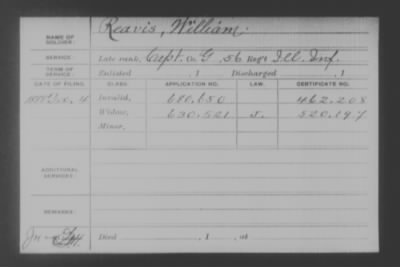 NAME OF SOLDIER: Reavis, William.
SERVICE: Late rank, Capt. Co. G, 56 Reg't Ill. Inf.
TERM OF SERVICE: Enlisted , 1 Discharged , 1
DATE OF FILING. CLASS. APPLICATION NO. LAW. CERTIFICATE NO.
4 Invalid, 680,650 462,208
Widow, 630,521 J. 520,197
Minor,
ADDITIONAL SERVICES:
REMARKS:
Died , 1 , at